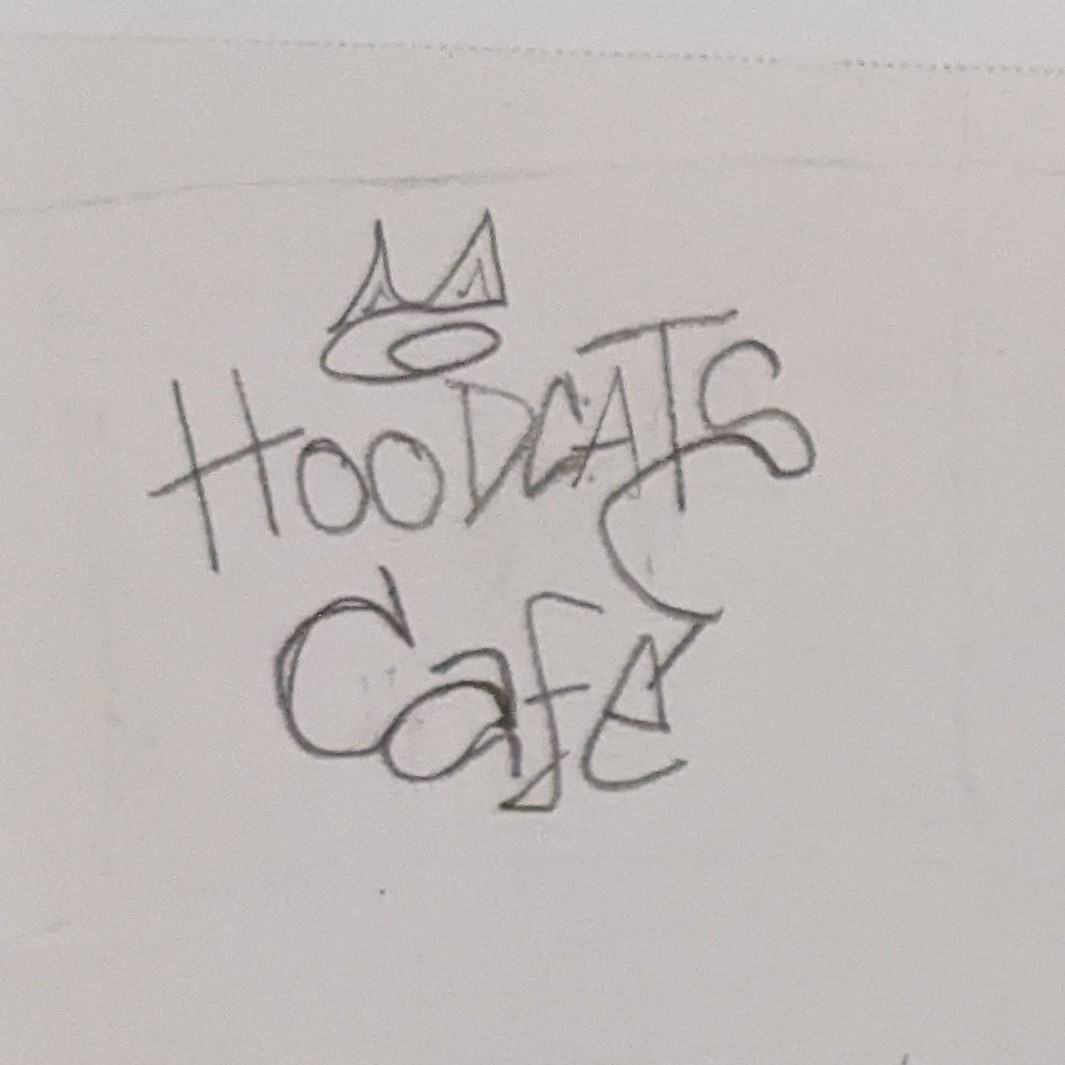 HOODCATS
Cafe